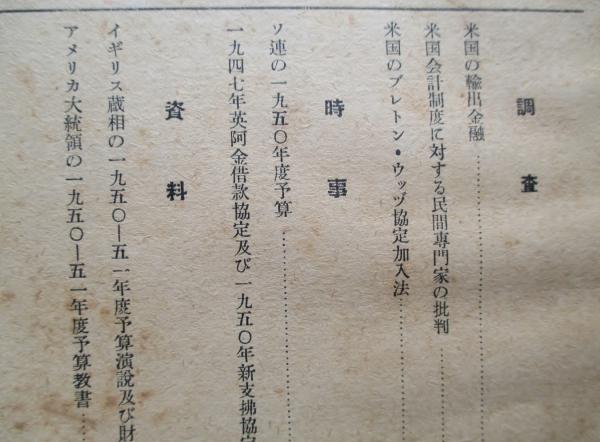 調査
米国の輸出金融
米国会計制度に対する民間専門家の批判
米国のブレトン・ウッヅ協定加入法
時事
ソ連の一九五〇年度予算
一九四七年英阿金借款協定及び一九五〇年新支拂協定
資料
イギリス蔵相の一九五〇―五一年度予算演説及び財
アメリカ大統領の一九五〇―五一年度予算教書